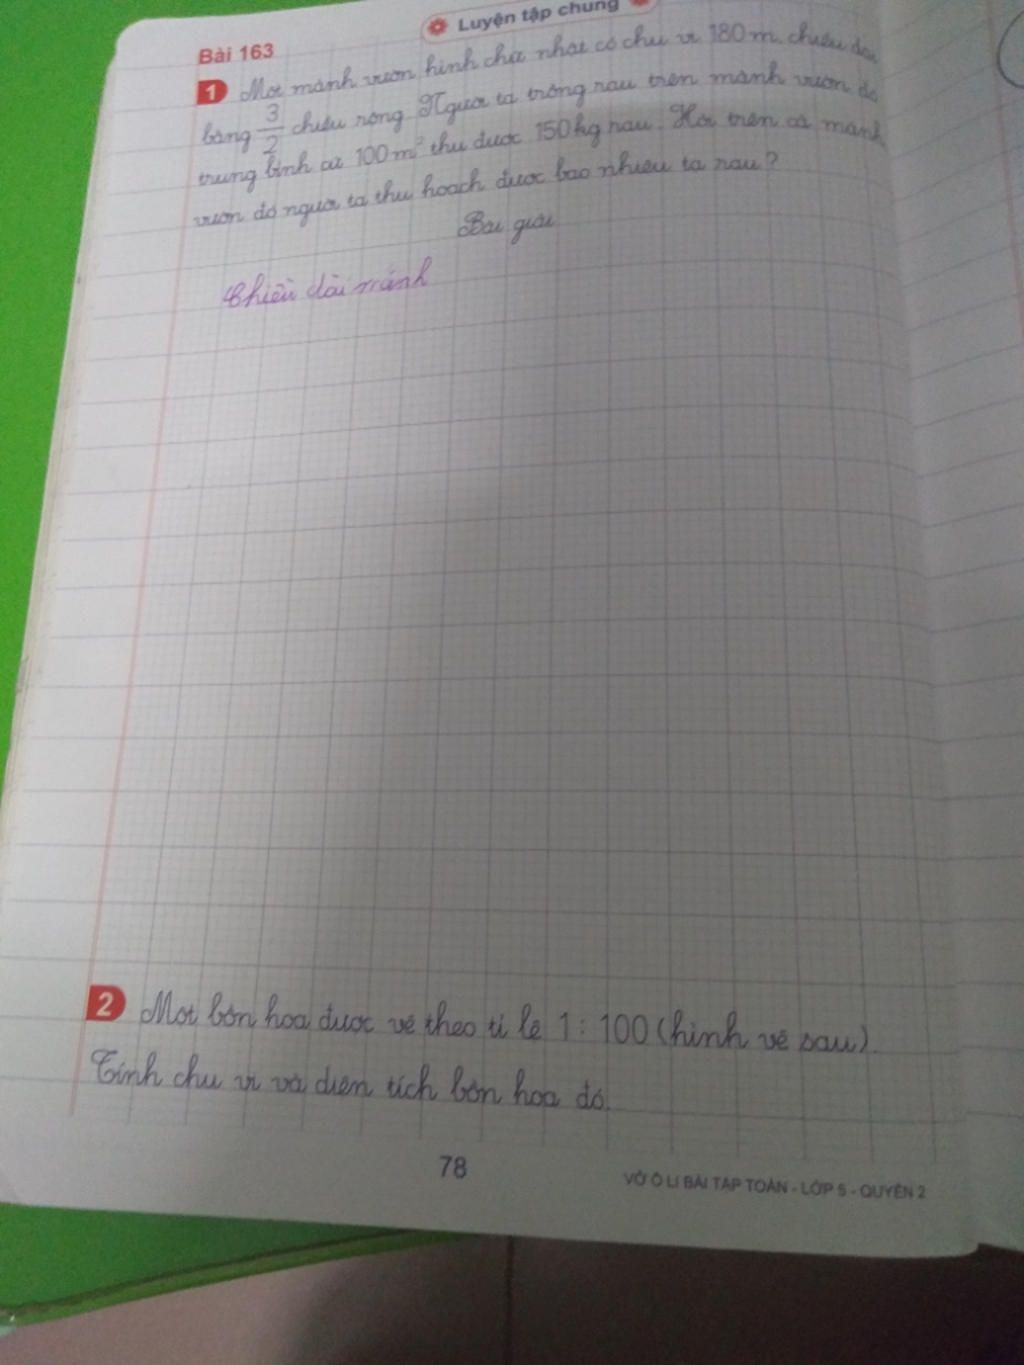 Luyện tập chung
Bài 163
1 Một mảnh vườn hình chữ nhật có chu vi 180m, chiều dài
bằng 3/2 chiều rộng. Người ta trồng rau trên mảnh vườn đó
trung bình cứ 100m² thu được 150kg rau. Hỏi trên cả mảnh
vườn đó người ta thu hoạch được bao nhiêu tạ rau?
Bài giải
Chiều dài mảnh
2 Một bồn hoa được vẽ theo tỉ lệ 1 : 100 (hình vẽ sau).
Tính chu vi và diện tích bồn hoa đó.
78
VỞ Ô LI BÀI TẬP TOÁN - LỚP 5 - QUYỂN 2